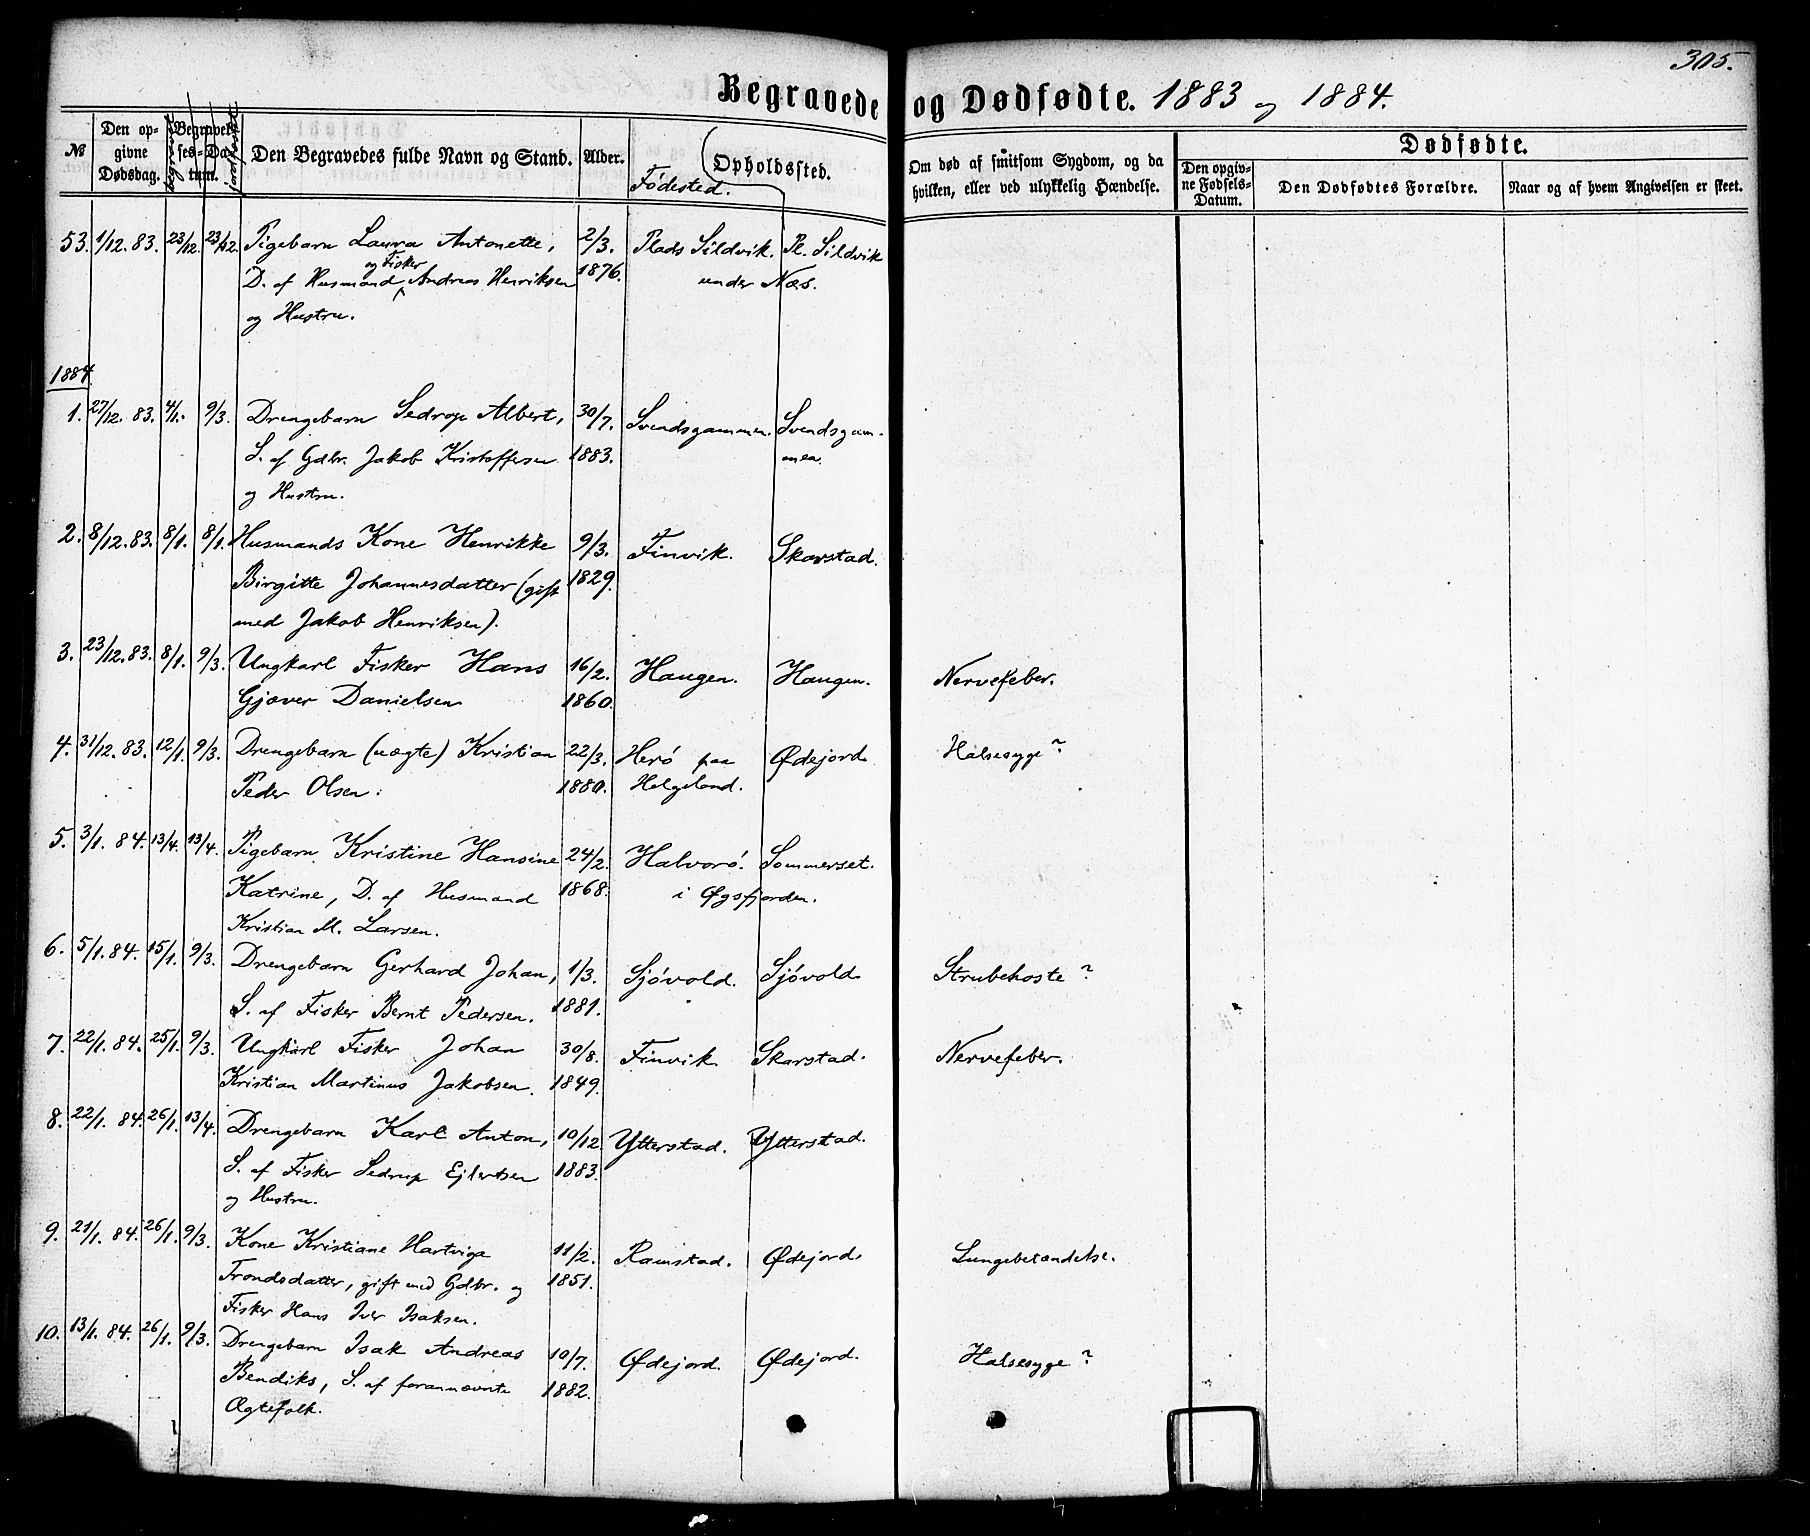 305.
Begravede og Dødfødte. 1883 og 1884.
№ | Den opgivne Dødsdag. | Begravelses-Datum. begravet jordfæstet | Den Begravedes fulde Navn og Stand. | Alder. | Fødested. | Opholdssted. | Om død af smitsom Sygdom, og da hvilken, eller ved ulykkelig Hændelse. | Dødfødte. | Den opgivne Fødsels-Datum. | Den Dødfødtes Forældre. | Naar og af hvem Angivelsen er skeet.
53. 1/12. 83. 23/12. 23/12. Pigebarn Laura Antonette, 2/3. Plads Sildvik. Pl. Sildvik
og Fisker
D. af Husmand Andreas Henriksen 1876. under Næs.
og Hustru.
1884.
1. 27/12. 83. 4/1. 9/3. Drengebarn Sedrop Albert, 30/7. Svendsgammen. Svendsgam-
S. af Gdbr. Jakob Kristoffersen 1883. men.
og Hustru.
2. 8/12. 83. 8/1. 8/1. Husmands Kone Henrikke 9/3. Finvik. Skarstad.
Birgitte Johannesdatter (gift 1829.
med Jakob Henriksen).
3. 23/12. 83. 8/1. 9/3. Ungkarl Fisker Hans 16/2. Haugen. Haugen. Nervefeber.
Gjæver Danielsen 1860.
4. 31/12. 83. 12/1. 9/3. Drengebarn (uægte) Kristian 22/3. Herø paa Ødejord. Halsesyge?
Peder Olsen. 1880. Helgeland.
5. 3/1. 84. 13/4. 13/4. Pigebarn Kristine Hansine 24/2. Halvorø. Sommerset.
Katrine, D. af Husmand 1868. i Øgsfjorden.
Kristian M. Larsen.
6. 5/1. 84. 15/1. 9/3. Drengebarn Gerhard Johan, 1/3. Sjøvold. Sjøvold. Strubehoste?
S. af Fisker Bernt Pedersen. 1881.
7. 22/1. 84. 25/1. 9/3. Ungkarl Fisker Johan 30/8. Finvik. Skarstad. Nervefeber.
Kristian Martinus Jakobsen. 1849.
8. 22/1. 84. 26/1. 13/4. Drengebarn Karl Anton, 10/12 Ytterstad. Ytterstad.
S. af Fisker Sedrup Ejlertsen 1883.
og Hustru.
9. 21/1. 84. 26/1. 9/3. Kone Kristiane Hartviga 11/2. Ramstad. Ødejord. Lungebetændelse.
Trondsdatter, gift med Gdbr. og 1851.
Fisker Hans Iver Isaksen.
10. 13/1. 84. 26/1. 9/3. Drengebarn Isak Andreas 10/7. Ødejord. Ødejord. Halsesyge?
Bendiks, S. af forannævnte 1882.
Ægtefolk.